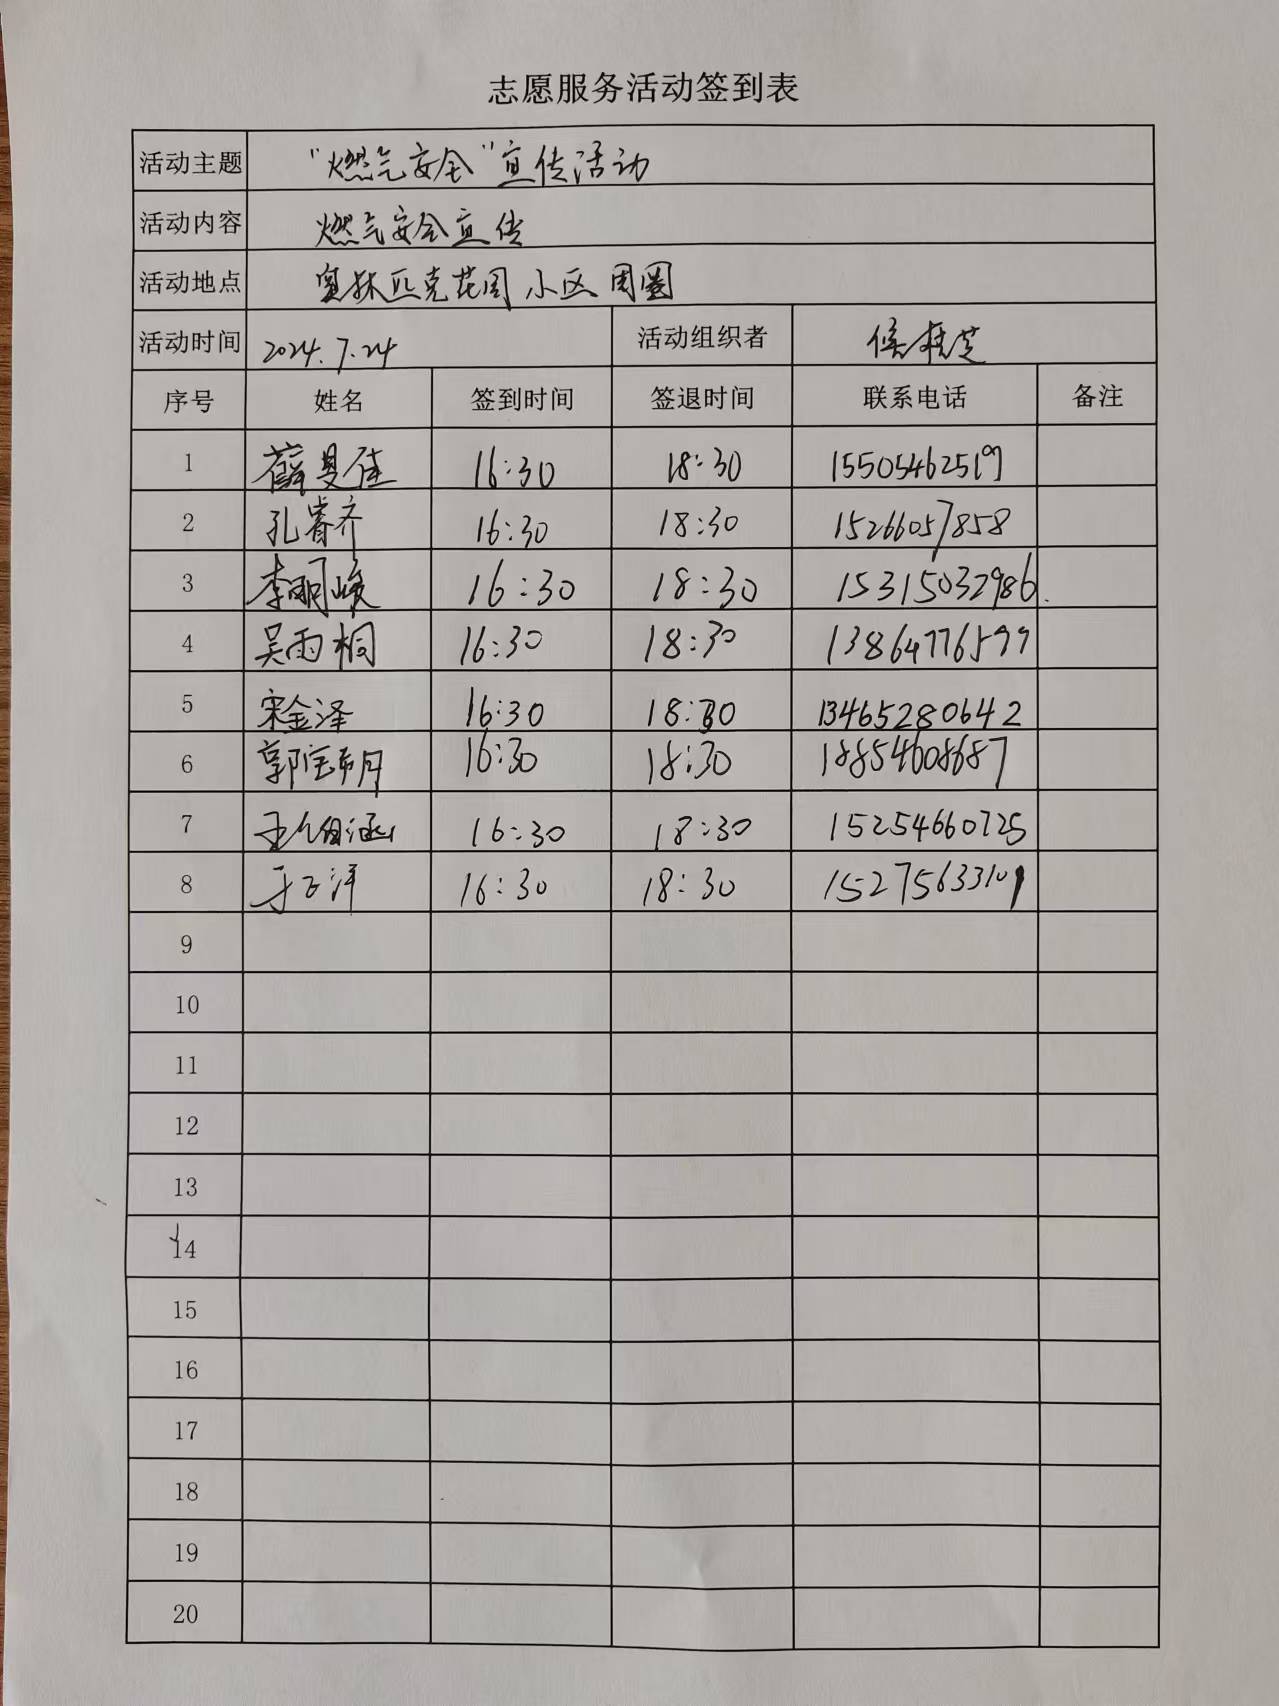 志愿服务活动签到表
活动主题 “燃气安全”宣传活动
活动内容 燃气安全宣传
活动地点 奥林匹克花园小区周圈
活动时间 2024.7.24 活动组织者 侯桂芝
序号 姓名 签到时间 签退时间 联系电话 备注
1 薛曼佳 16:30 18:30 15505462519
2 孔睿齐 16:30 18:30 15266057858
3 李明峻 16:30 18:30 15315032986.
4 吴雨桐 16:30 18:30 13864776599
5 宋金泽 16:30 18:30 13465280642
6 郭宝玥 16:30 18:30 18854608687
7 王伯涵 16:30 18:30 15254660725
8 于子洋 16:30 18:30 15275633109
9
10
11
12
13
14
15
16
17
18
19
20